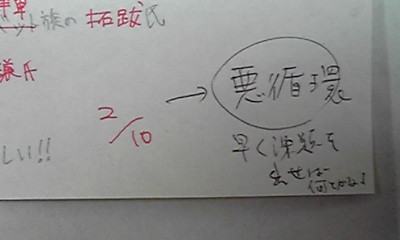 族の 拓跋氏
謙氏
しい!!
2/10
→ 悪循環
早く課題を
出せば
何とかなる